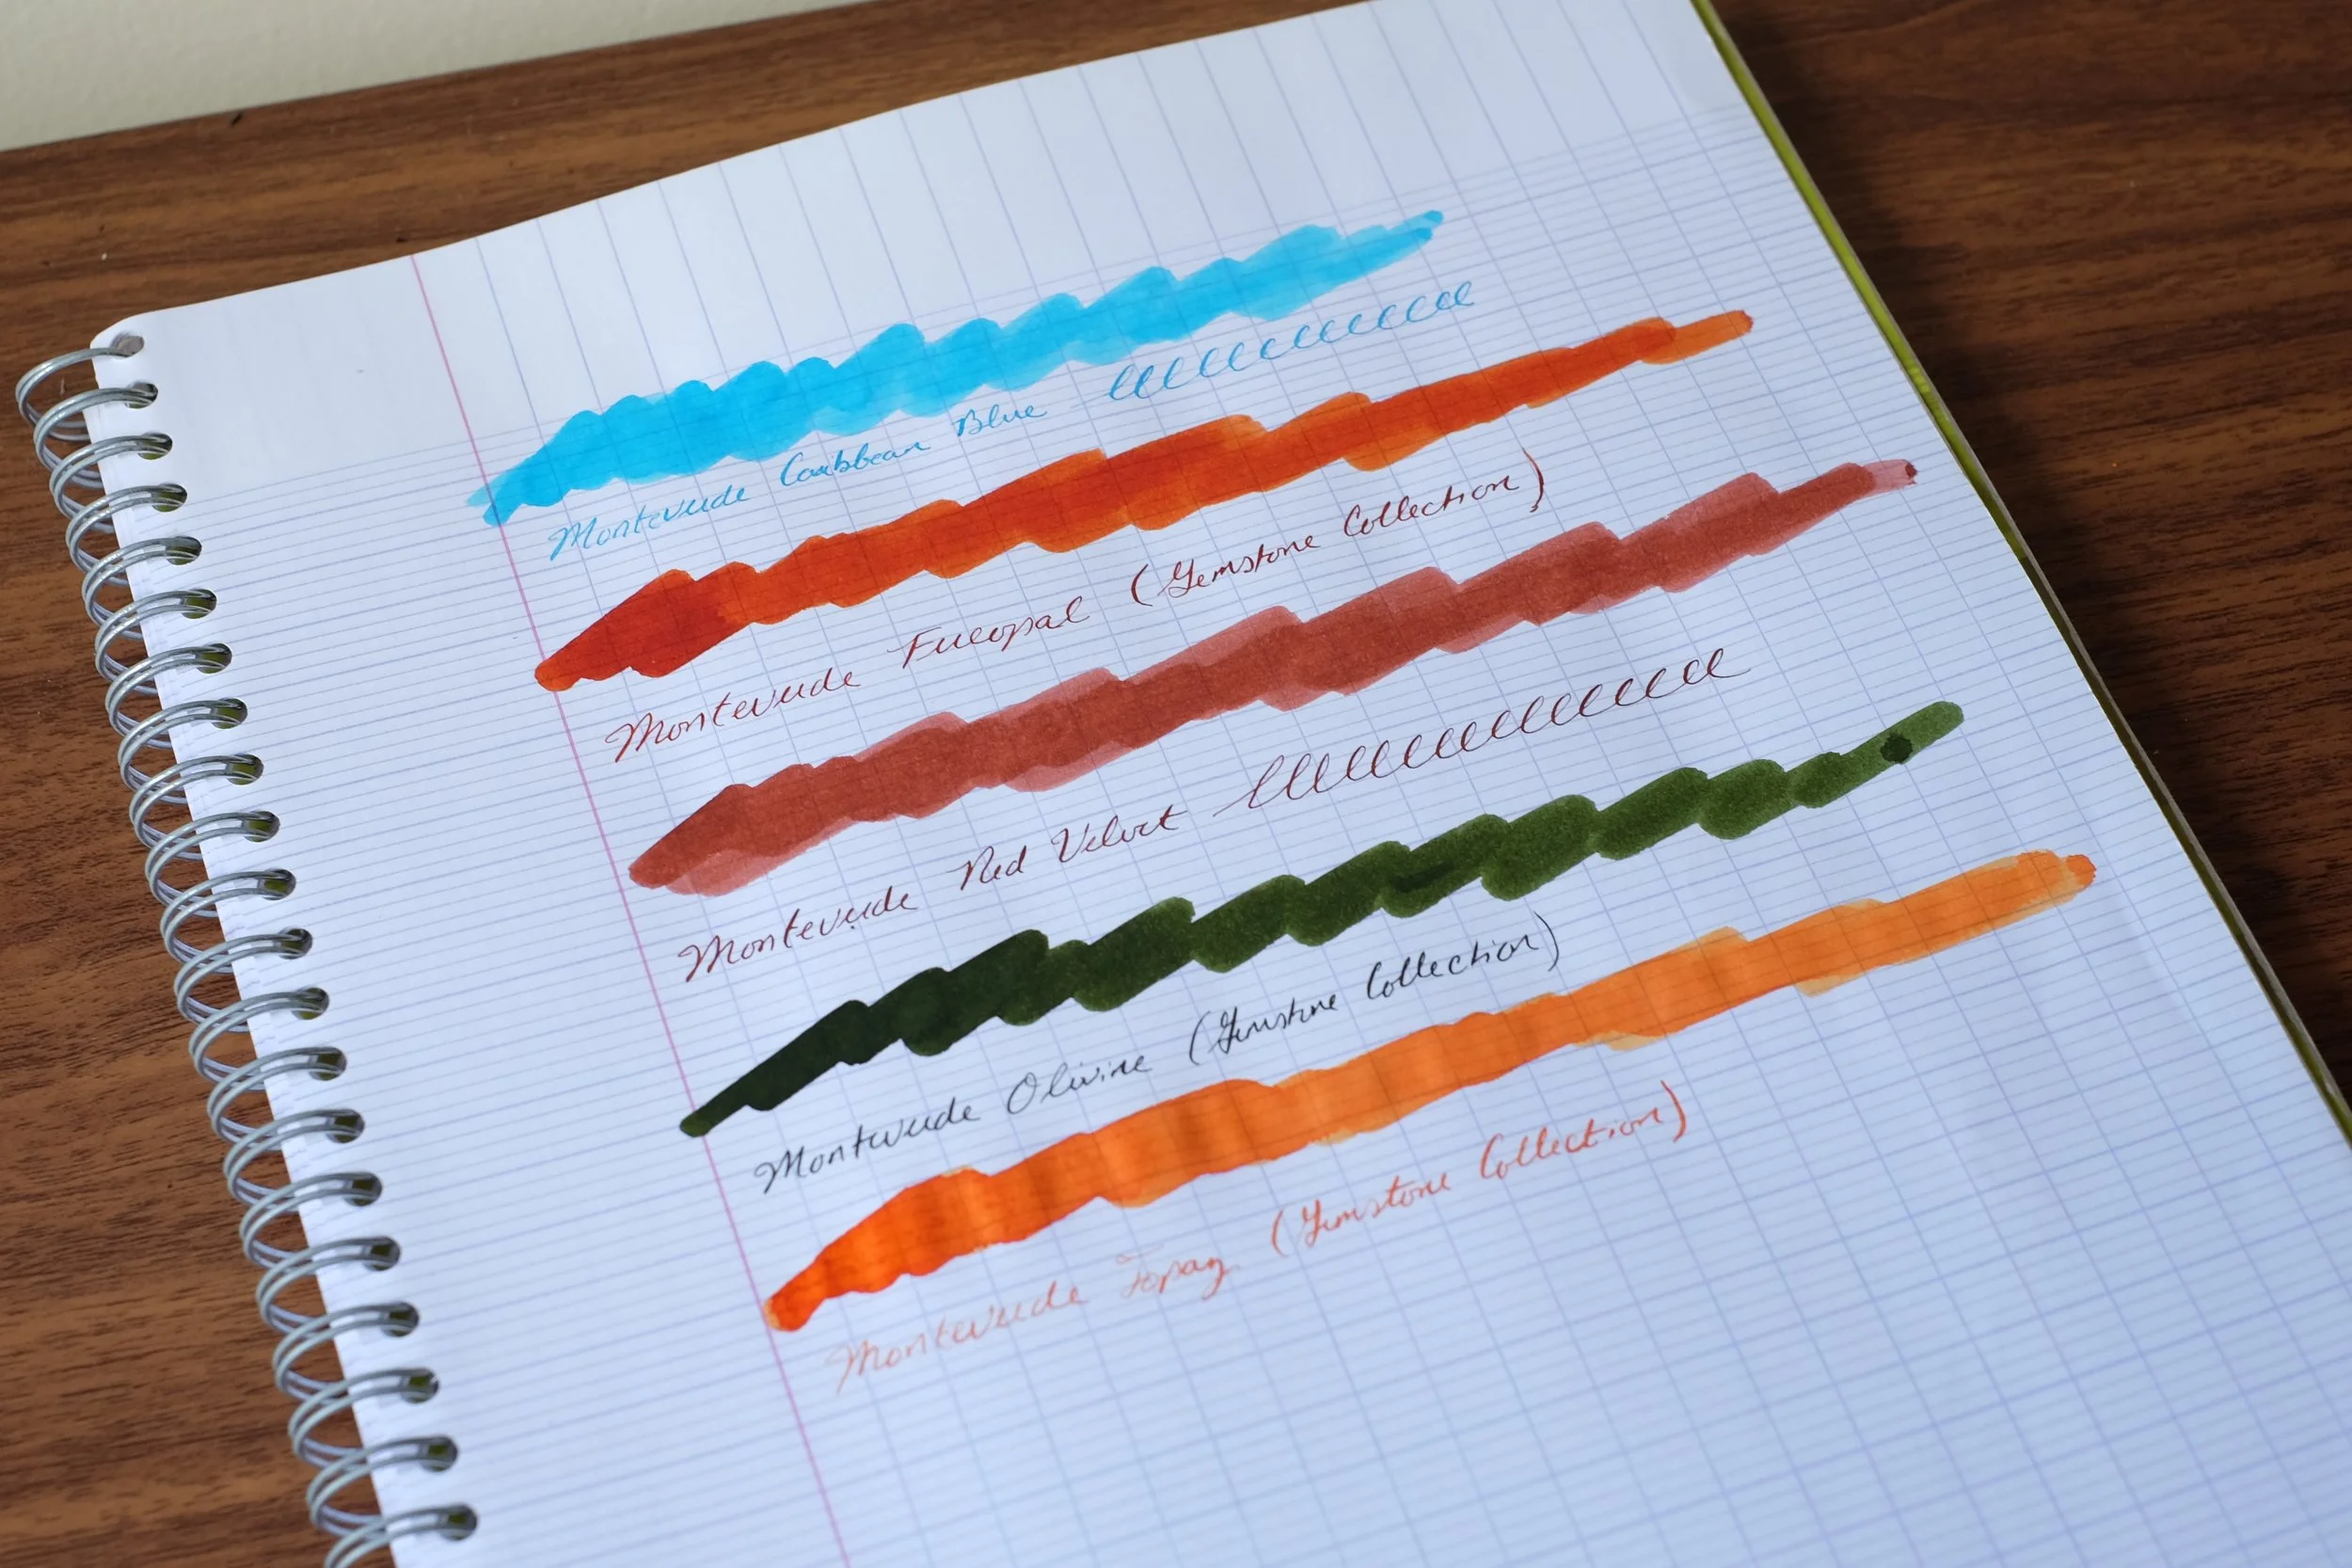 Monteverde Caribbean Blue
Monteverde Fireopal (Gemstone Collection)
Monteverde Red Velvet
Monteverde Olivine (Gemstone Collection)
Monteverde Topaz (Gemstone Collection)